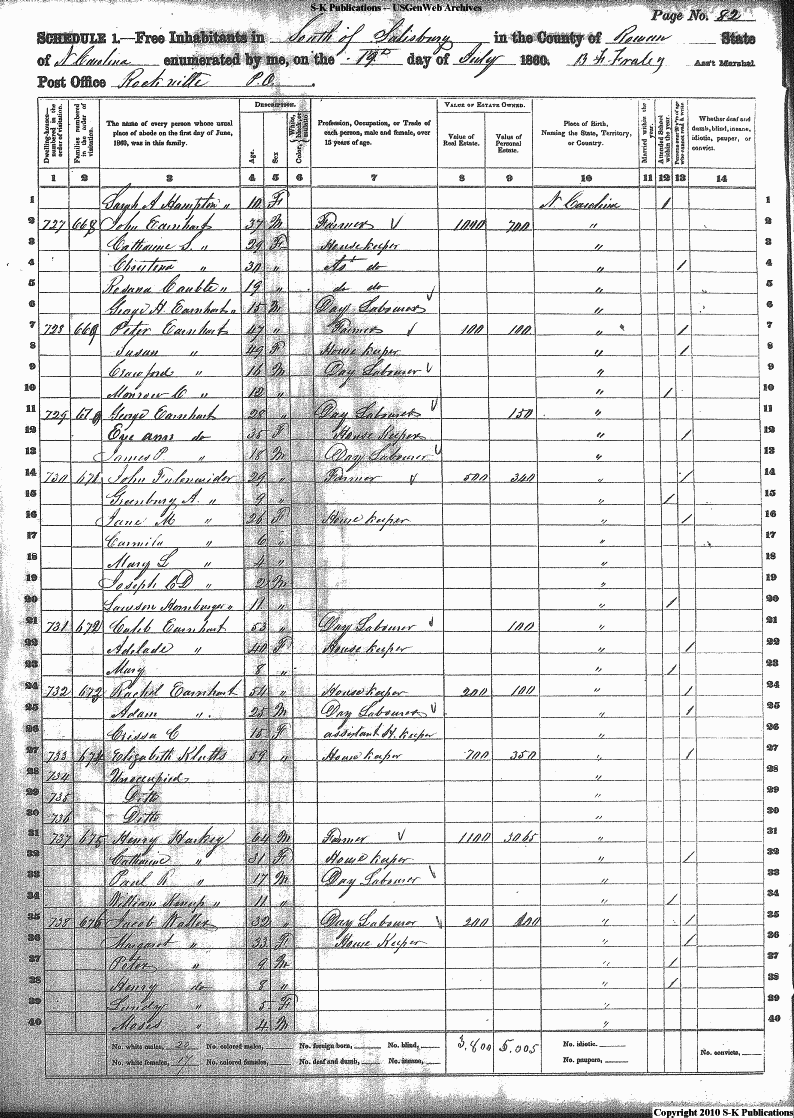 S-K Publications -- USGenWeb Archives
Page No. 82
SCHEDULE 1.—Free Inhabitants in South of Salisbury in the County of Rowan State
of N Carolina enumerated by me, on the 19th day of July 1860. B F Fraley Ass't Marshal
Post Office Rockville P.O.
DESCRIPTION. VALUE OF ESTATE OWNED.
Dwelling-houses numbered in the order of visitation. Families numbered in the order of visitation. The name of every person whose usual place of abode on the first day of June, 1860, was in this family. Age. Sex Color, White, black, or mulatto Profession, Occupation, or Trade of each person, male and female, over 15 years of age. Value of Real Estate. Value of Personal Estate. Place of Birth, Naming the State, Territory, or Country. Married within the year. Attended School within the year. Whether deaf and dumb, blind, insane, idiotic, pauper, or convict.
1 2 3 4 5 6 7 8 9 10 11 12 13 14
1 Sarah A Hampton " 10 F N Carolina / 1
2 727 668 John Earnhart 37 M Farmer 1000 700 " 2
3 Catharine S. " 29 F House keeper " 3
4 Christena " 30 " Ast do " / 4
5 Rosana Cauble " 19 " do do " 5
6 George H Earnhart " 15 M Day Labourer " 6
7 728 669 Peter Earnhart 47 " Farmer 100 100 " / 7
8 Susan " 49 F House keeper " / 8
9 Crawford " 16 M Day Labourer " 9
10 Monroe C " 12 " " / 10
11 729 670 George Earnhart 28 " Day Labourer 150 " 11
12 Eve ann do 35 F House Keeper " / 12
13 James P. " 18 M Day Labourer " 13
14 730 671 John Fulenwider 29 " Farmer 500 340 " / 14
15 Greenbury A. " 9 " " / 15
16 Jane M " 26 F House keeper " / 16
17 Camila " 6 " " 17
18 Mary L " 4 " " 18
19 Joseph C D " 2 M " 19
20 Lawson Hornbarger " 11 " " / 20
21 731 672 Caleb Earnhart 53 " Day Labourer 100 " 21
22 Adelade " 40 F House keeper " / 22
23 Mary 8 " " / 23
24 732 673 Rachel Earnhart 54 " House keeper 200 100 " / 24
25 Adam " 25 M Day Labourer " / 25
26 Crissa C 15 F assistant H. keeper " 26
27 733 674 Elizabeth Klutts 59 " House keeper 700 350 " / 27
28 734 Unoccupied " 28
29 735 Ditto " 29
30 736 Ditto " 30
31 737 675 Henry Harkey 64 M Farmer 1100 3065 " 31
32 Catharine " 31 F House keeper " / 32
33 Paul R " 17 M Day Labourer " 33
34 William Knup " 11 " " / 34
35 738 676 Jacob Waller 32 " Day Labourer 200 100 " / 35
36 Margaret " 33 F House Keeper " / 36
37 Peter " 9 M " / 37
38 Henry do 8 " " / 38
39 " 5 F " 39
40 Moses " 4 M " 40
No. white males, 20 No. colored males, No. foreign born, No. blind, 3,800 5,005 No. idiotic,
No. white females, 17 No. colored females, No. deaf and dumb, No. insane, No. paupers, No. convicts,
Copyright 2010 S-K Publications